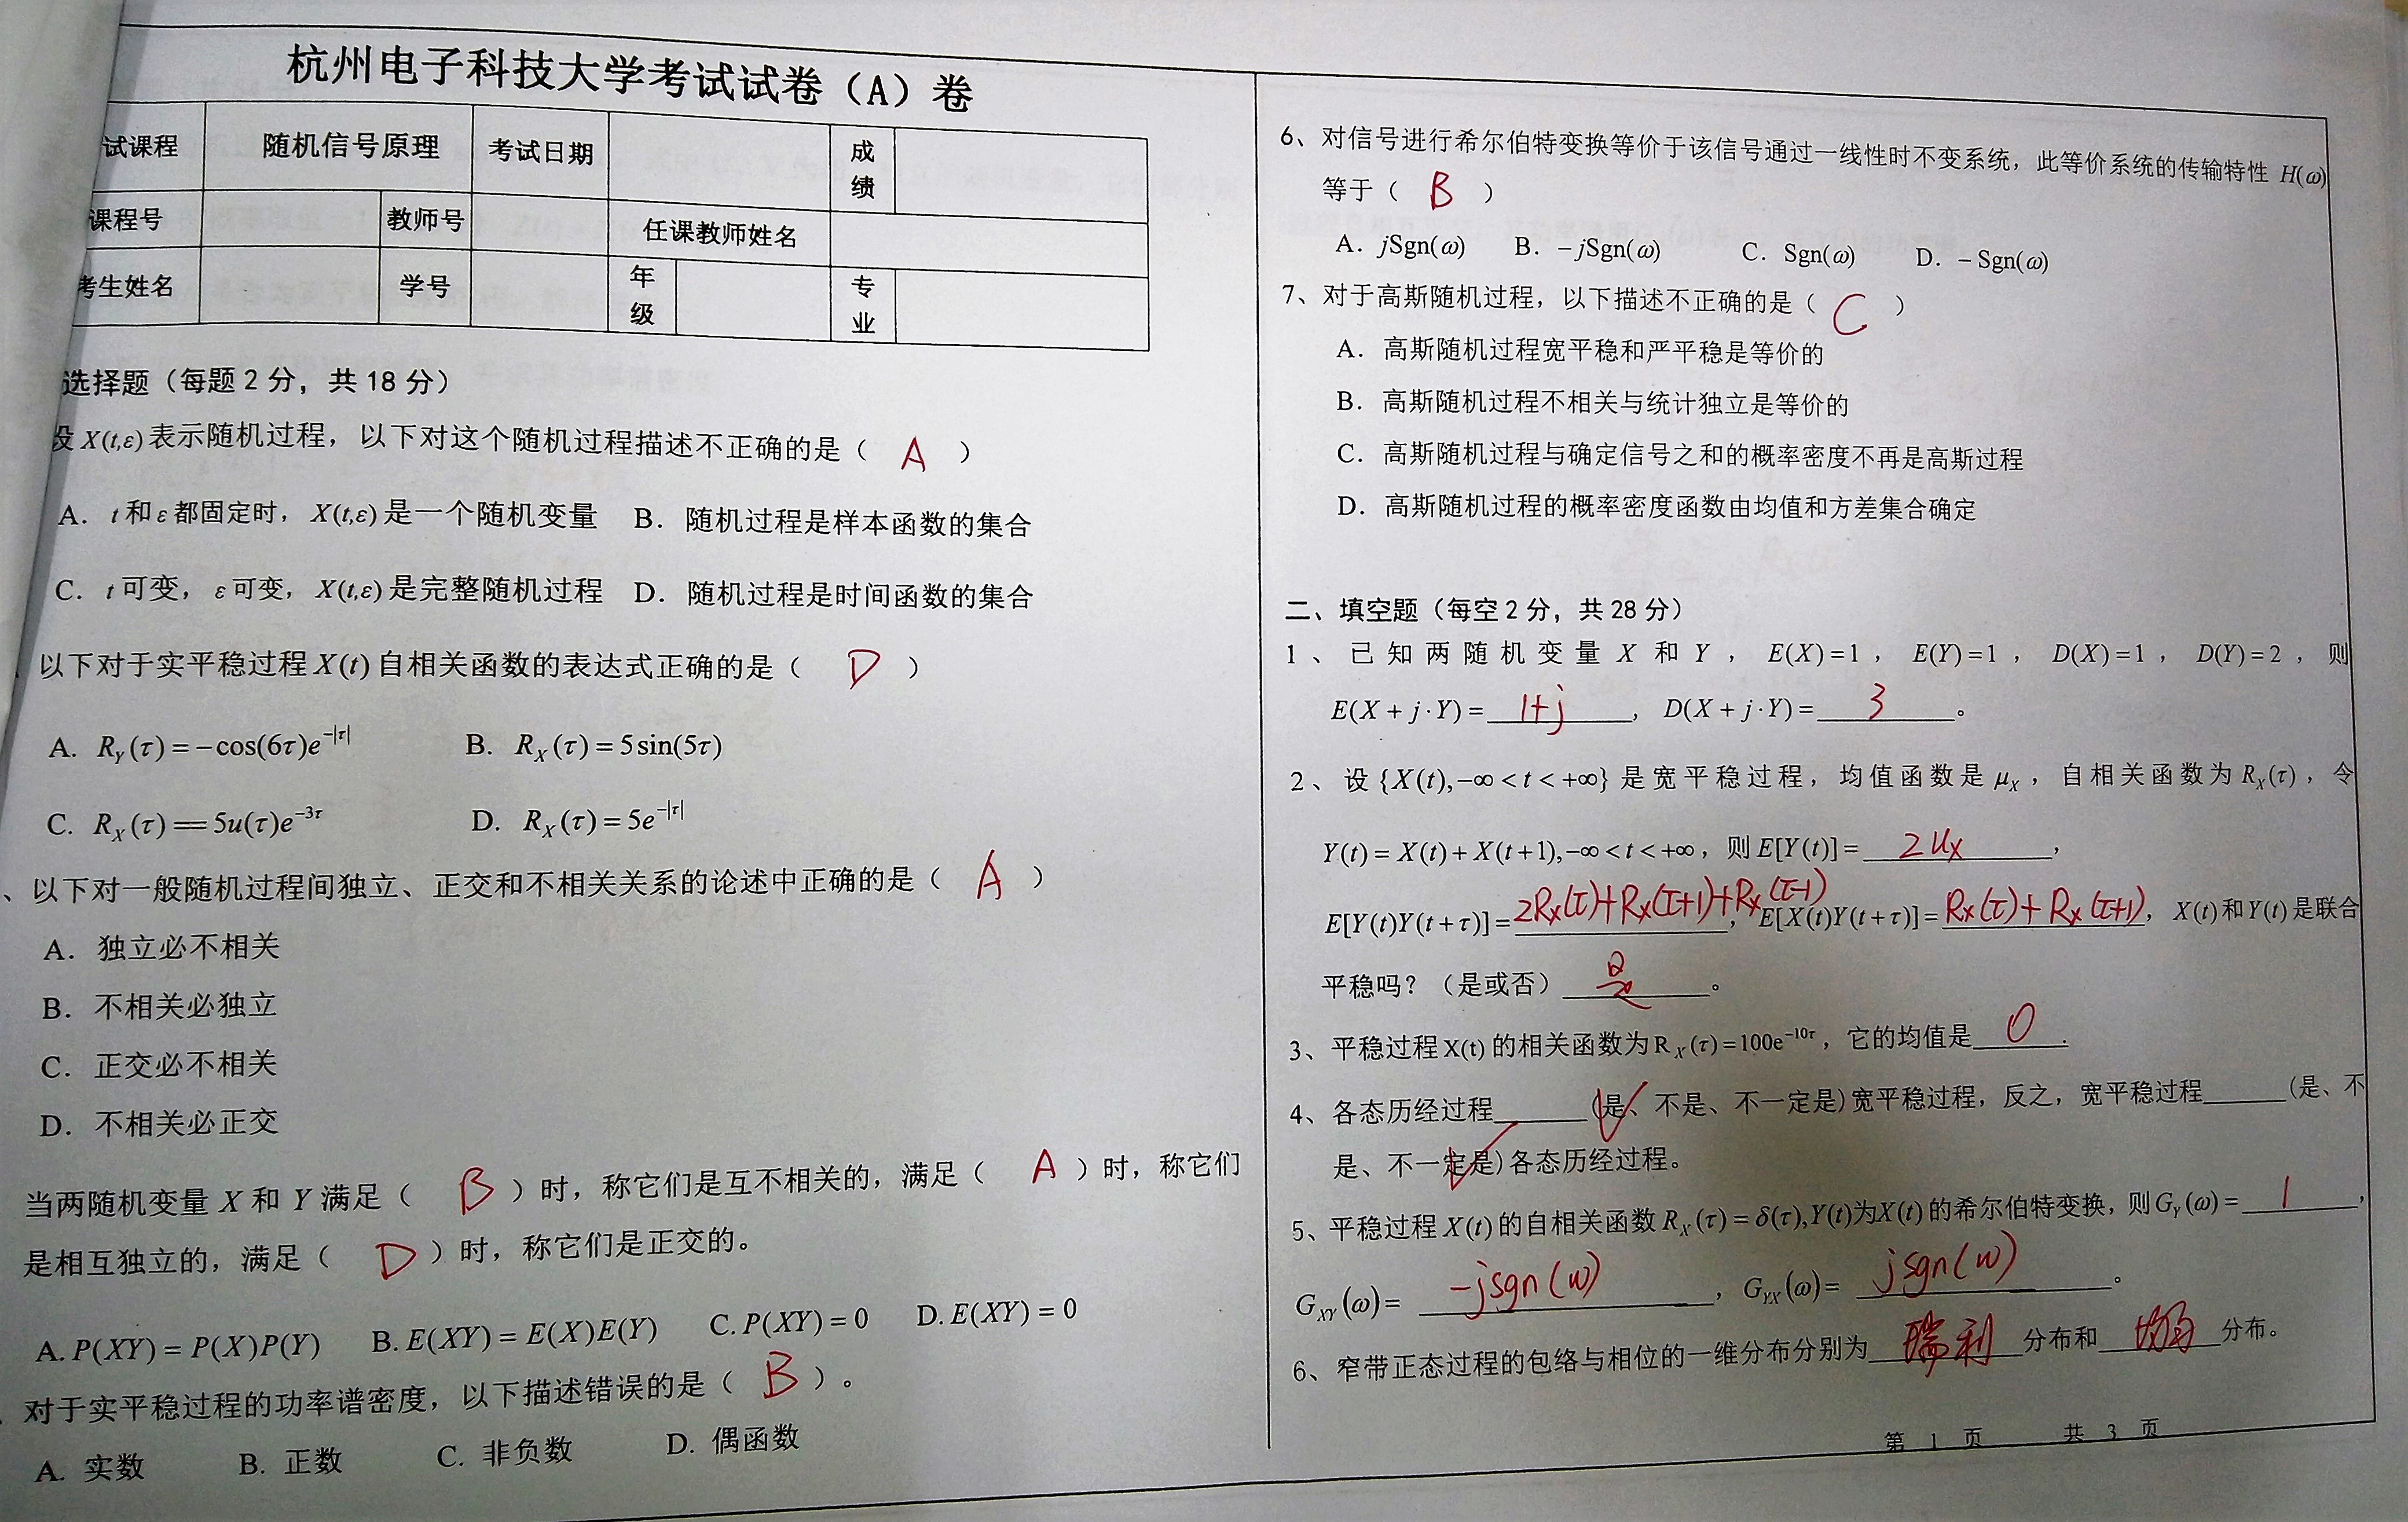 杭州电子科技大学考试试卷（A）卷
试课程 随机信号原理 考试日期 成绩
课程号 教师号 任课教师姓名
考生姓名 学号 年级 专业
选择题（每题 2 分，共 18 分）
设 X(t,ε) 表示随机过程，以下对这个随机过程描述不正确的是（ A ）
A. t 和 ε 都固定时，X(t,ε) 是一个随机变量 B. 随机过程是样本函数的集合
C. t 可变，ε 可变，X(t,ε) 是完整随机过程 D. 随机过程是时间函数的集合
以下对于实平稳过程 X(t) 自相关函数的表达式正确的是（ D ）
A. R_Y(τ)=−cos(6τ)e^{−|τ|} B. R_X(τ)=5sin(5τ)
C. R_X(τ)==5u(τ)e^{−3τ} D. R_X(τ)=5e^{−|τ|}
、以下对一般随机过程间独立、正交和不相关关系的论述中正确的是（ A ）
A. 独立必不相关
B. 不相关必独立
C. 正交必不相关
D. 不相关必正交
当两随机变量 X 和 Y 满足（ B ）时，称它们是互不相关的，满足（ A ）时，称它们
是相互独立的，满足（ D ）时，称它们是正交的。
A. P(XY)=P(X)P(Y) B. E(XY)=E(X)E(Y) C. P(XY)=0 D. E(XY)=0
对于实平稳过程的功率谱密度，以下描述错误的是（ B ）。
A. 实数 B. 正数 C. 非负数 D. 偶函数
6、对信号进行希尔伯特变换等价于该信号通过一线性时不变系统，此等价系统的传输特性 H(ω)
等于（ B ）
A. jSgn(ω) B. −jSgn(ω) C. Sgn(ω) D. −Sgn(ω)
7、对于高斯随机过程，以下描述不正确的是（ C ）
A. 高斯随机过程宽平稳和严平稳是等价的
B. 高斯随机过程不相关与统计独立是等价的
C. 高斯随机过程与确定信号之和的概率密度不再是高斯过程
D. 高斯随机过程的概率密度函数由均值和方差集合确定
二、填空题（每空 2 分，共 28 分）
1、已知两随机变量 X 和 Y，E(X)=1，E(Y)=1，D(X)=1，D(Y)=2，则
E(X+j·Y)= 1+j ，D(X+j·Y)= 3 。
2、设 {X(t),−∞<t<+∞} 是宽平稳过程，均值函数是 μ_X，自相关函数为 R_X(τ)，令
Y(t)=X(t)+X(t+1),−∞<t<+∞，则 E[Y(t)]= 2u_X ，
E[Y(t)Y(t+τ)]= 2R_X(τ)+R_X(τ+1)+R_X(τ-1) ，E[X(t)Y(t+τ)]= R_X(τ)+R_X(τ+1) ，X(t) 和 Y(t) 是联合
平稳吗？（是或否） 是 。
3、平稳过程 X(t) 的相关函数为 R_X(τ)=100e^{−10τ}，它的均值是 0 .
4、各态历经过程______（是、不是、不一定是)宽平稳过程，反之，宽平稳过程______(是、不
是、不一定是)各态历经过程。
5、平稳过程 X(t) 的自相关函数 R_X(τ)=δ(τ),Y(t)为X(t) 的希尔伯特变换，则 G_Y(ω)= 1 ，
G_XY(ω)= -jsgn(w) ，G_YX(ω)= jsgn(w) 。
6、窄带正态过程的包络与相位的一维分布分别为 瑞利 分布和 均匀 分布。
第 1 页 共 3 页